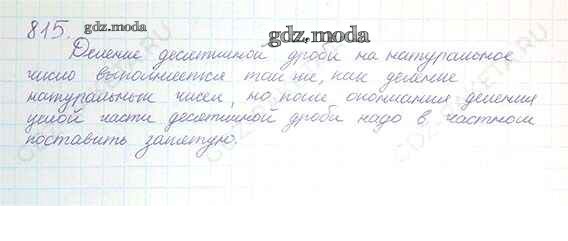 815. gdz.moda
gdz.moda
Деление десятичной дроби на натуральное
число выполняется так же, как деление
натуральных чисел, но после окончания деления
целой части десятичной дроби надо в частном
поставить запятую.